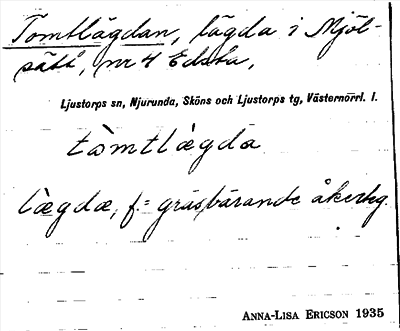 Tomtlägdan, lägda i Mjöl-
sätt, nr 4 Edsta,
Ljustorps sn, Njurunda, Sköns och Ljustorps tg, Västernorrl. l.
tòmtlàgda
lægdæ, f. = gräsbärande åkerteg.
ANNA-LISA ERICSON 1935